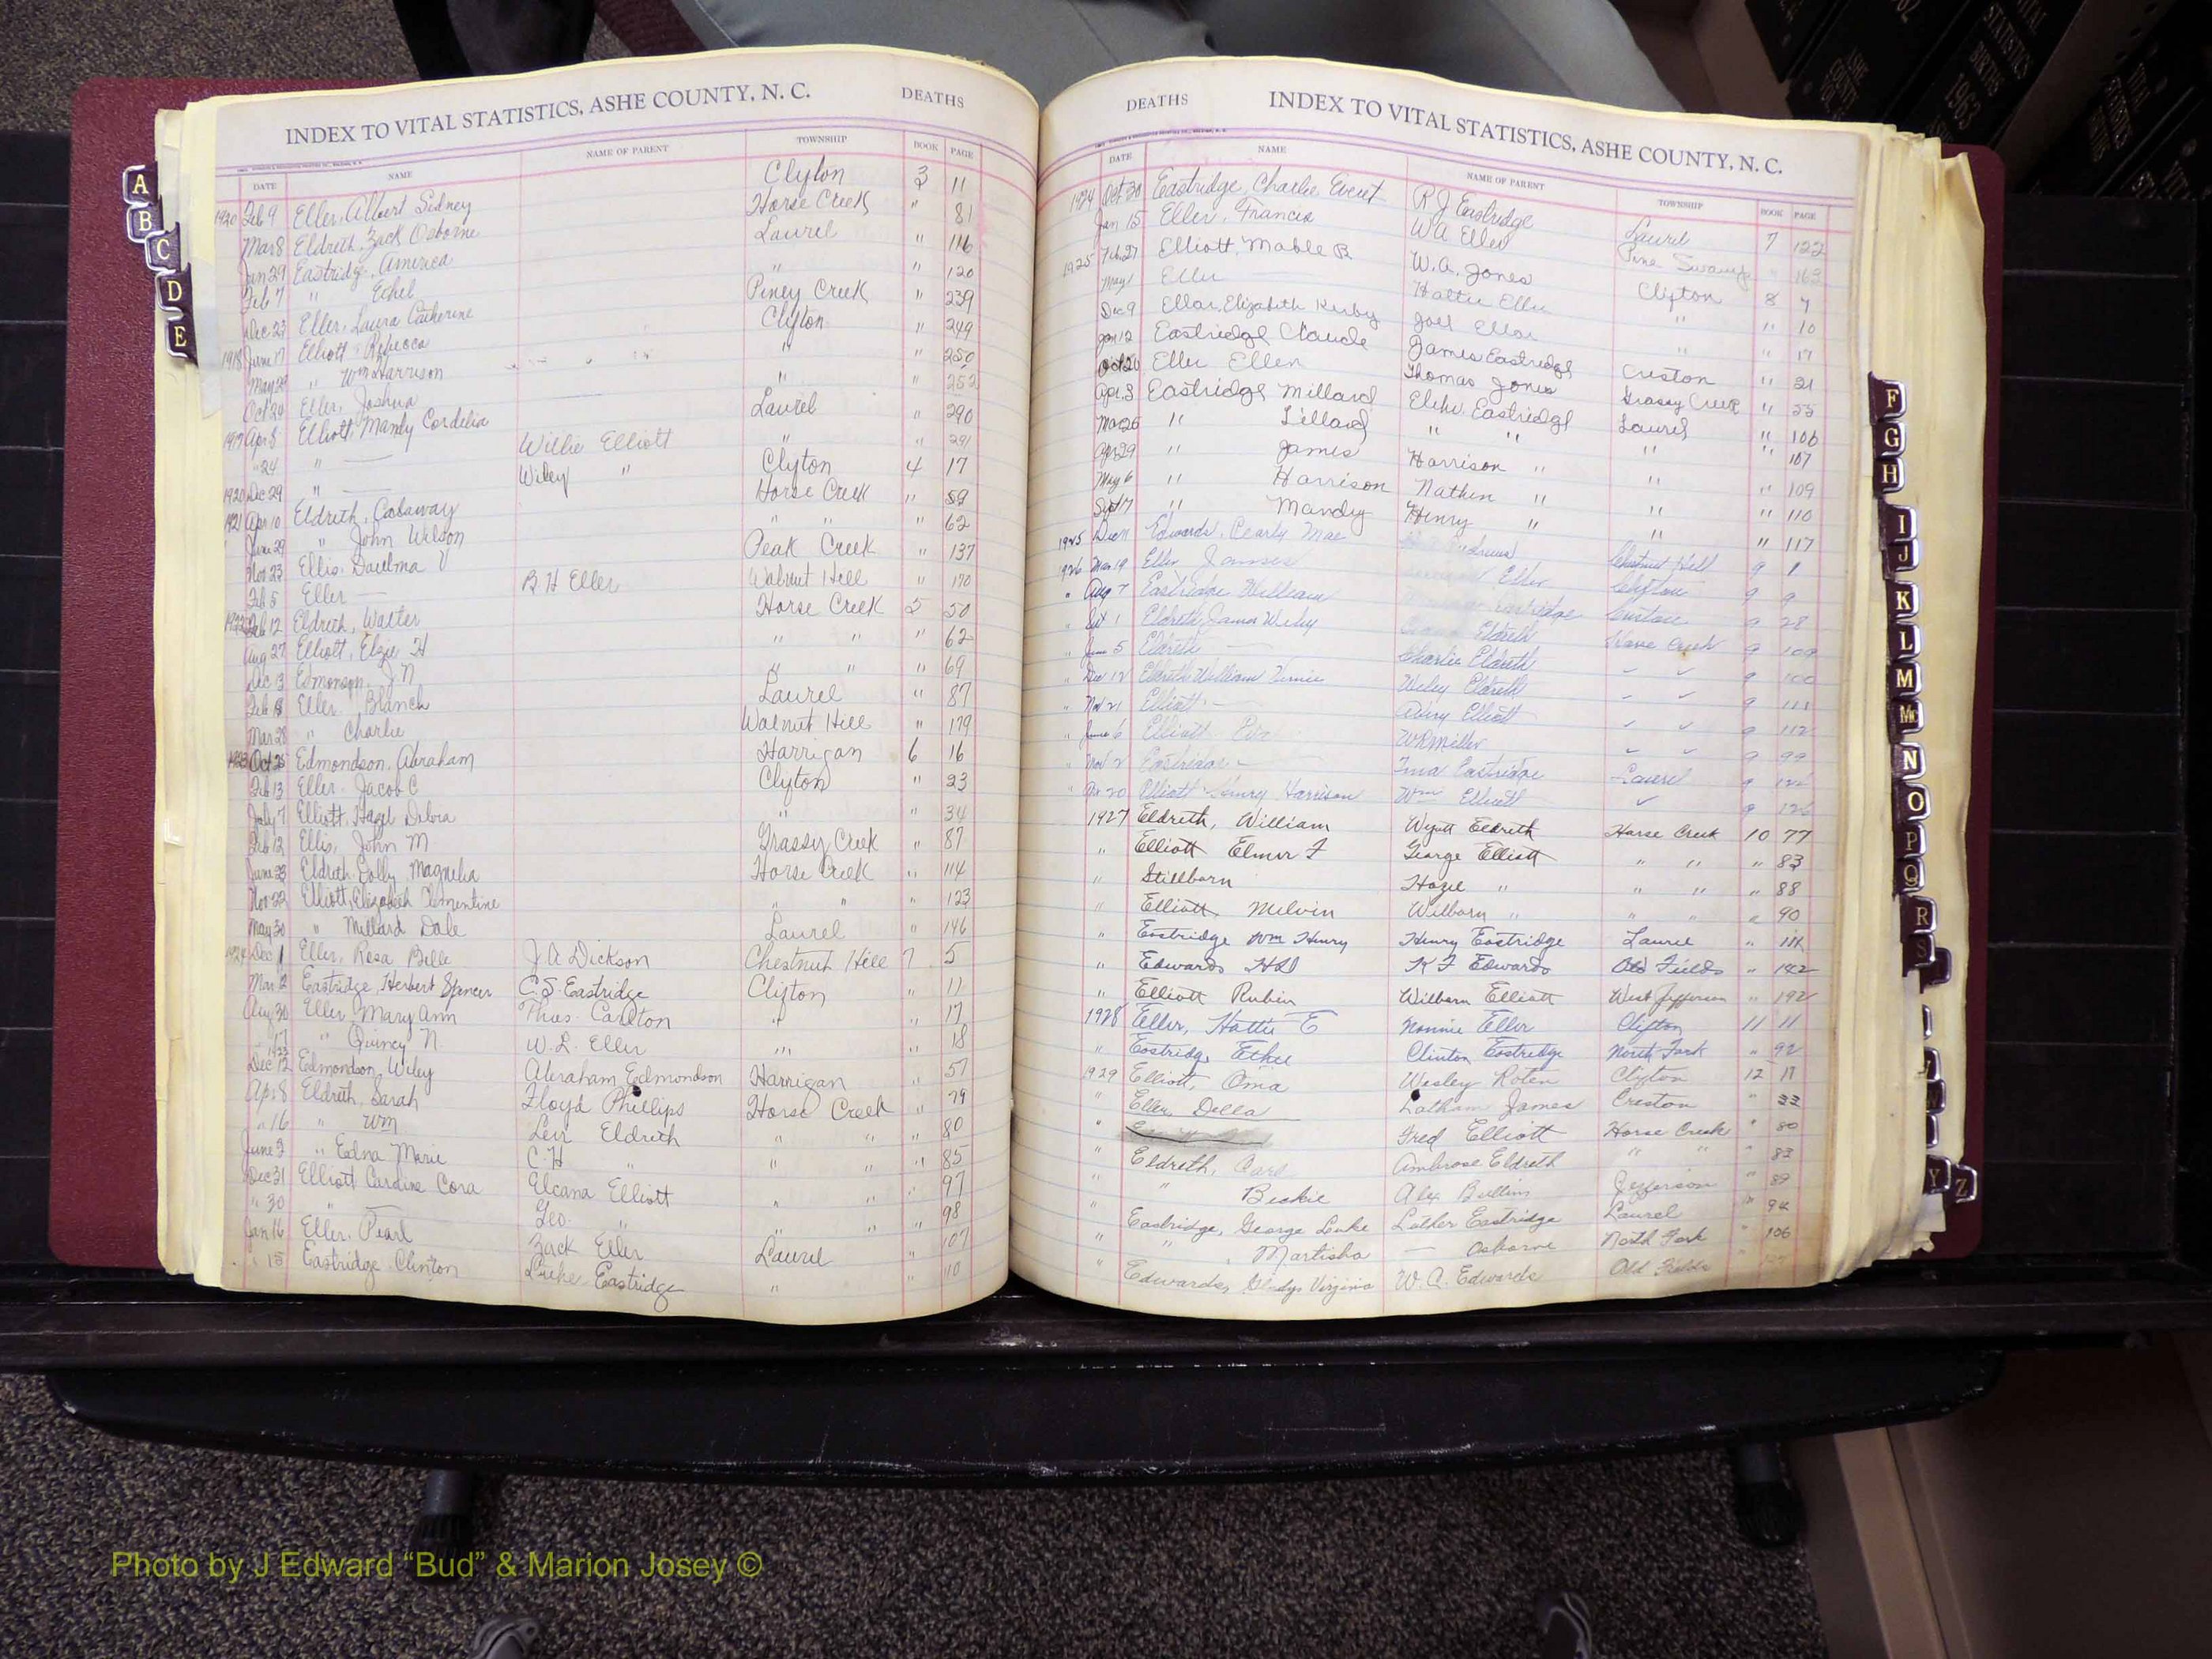 INDEX TO VITAL STATISTICS, ASHE COUNTY, N. C. DEATHS
DATE NAME NAME OF PARENT TOWNSHIP BOOK PAGE
1920 Feb 9 Eller, Albert Sidney Clifton 3 11
Mar 8 Eldreth, Zack Osborne Horse Creek " 81
Jan 29 Eastridge, America Laurel " 116
Feb 7 " Ethel " " 120
Dec 23 Eller, Laura Catherine Piney Creek " 239
1918 June 17 Elliott, Rebecca Clifton " 249
" Wm Harrison " " 250
Oct 24 Eller, Joshua " " 252
1917 Apr 8 Elliott, Mandy Cordelia Laurel " 290
" 24 " — Willie Elliott " " 291
1920 Dec 29 " — Wiley " Clifton 4 17
1921 Apr 10 Eldreth, Calaway Horse Creek " 59
June 29 " John Wilson " " " 62
Nov 23 Ellis, V Peak Creek " 137
Feb 5 Eller — B H Eller Walnut Hill " 170
1922 Feb 12 Eldreth, Walter Horse Creek 5 50
Aug 27 Elliott, Elzie H " " " 62
Dec 3 Edmonson, J. N " " " 69
Feb Eller, Blanch Laurel " 87
Mar 28 " Charlie Walnut Hill " 179
1923 Oct 25 Edmondson, Abraham Harrigan 6 16
Feb 13 Eller, Jacob C Clifton " 23
July 7 Elliott, Hazel " " 34
Feb 12 Ellis, John M. Grassy Creek " 87
June 23 Eldreth, Dolly Magnelia Horse Creek " 114
Nov 22 Elliott, Elizabeth Clementine " " " 123
May 30 " Millard Dale Laurel " 146
1924 Dec 1 Eller, Rosa Belle J. A Dickson Chestnut Hill 7 5
Mar 2 Eastridge, Herbert Spencer C. S Eastridge Clifton " 11
Aug 30 Eller, Mary Ann Thos. Carlton " " 17
" 17 " Quincy N. W. L. Eller " " 18
1923 Dec 12 Edmondson, Wiley Abraham Edmondson Harrigan " 57
Apr 8 Eldreth, Sarah Floyd Phillips Horse Creek " 79
" 16 " Wm Levi Eldreth " " " 80
June 3 " Edna Marie C. H " " " " 85
Dec 31 Elliott Caroline Cora Elcana Elliott " " " 97
" 30 " — Geo. " " " " 98
Jan 16 Eller, Pearl Zack Eller Laurel " 107
" 15 Eastridge Clinton Luke Eastridge " " 110
DEATHS INDEX TO VITAL STATISTICS, ASHE COUNTY, N. C.
DATE NAME NAME OF PARENT TOWNSHIP BOOK PAGE
1924 Oct 30 Eastridge, Charlie Everet R J Eastridge Laurel 7 122
Jan 15 Eller, Francis W A Eller Pine Swamp " 163
1925 Feb. 27 Elliott, Mable B W. A. Jones Clifton 8 7
May 1 Eller Hattie Eller " " 10
Dec 9 Ellar, Elizabeth Kirby Joel Ellar " " 17
Jan 12 Eastridge Claude James Eastridge Creston " 21
Oct 20 Eller Ellen Thomas Jones Grassy Creek " 55
Apr. 3 Eastridge Millard Elihu Eastridge Laurel " 106
Mar 26 " Lillard " " " " 107
Apr 29 " James Harrison " " " 109
May 6 " Harrison Nathen " " " 110
Sept 17 " Mandy Henry " " " 117
1925 Dec 11 Edwards, Pearly Mae Chestnut Hill 9 1
1926 Mar 19 Eller James Eller Clifton 9 9
" Aug 7 Eastridge William Eastridge Creston 9 28
" Oct 1 Eldreth, James Wiley Eldreth Horse Creek 9 109
" June 5 Eldreth — Charlie Eldreth 9 100
" Dec 12 Eldreth William Wiley Eldreth 9 111
" Nov 21 Elliott — Avery Elliott 9 112
" June 6 Elliott W R Miller 9 99
" Nov 2 Eastridge — Eastridge Laurel 9
" 20 Elliott Henry Harrison Wm Elliott 9 126
1927 Eldreth, William Wyatt Eldreth Horse Creek 10 77
" Elliott Elmer F George Elliott " " " 83
" Stillborn Hazel " " " " 88
" Elliott, Melvin Wilborn " " " " 90
" Eastridge Wm Henry Henry Eastridge Laurel "
" Edwards H K F Edwards Old Fields " 142
" Elliott Rubin Wilborn Elliott West Jefferson " 192
1928 Eller, Hattie E Nonnie Eller Clifton 11 11
" Eastridge Ethel Clinton Eastridge North Fork " 92
1929 Elliott, Oma Wesley Roten Clifton 12 11
" Eller, Della Latham James Creston "
" Fred Elliott Horse Creek " 80
" Eldreth, Carl Ambrose Eldreth " " " 83
" " Beckie Alex Bullin Jefferson " 89
" Eastridge, George Luke Luther Eastridge Laurel " 94
" " Martisha — Osborne North Fork " 106
" Edwards, Gladys Virginia W. C. Edwards Old Fields
A
B
C
D
E
F
G
H
I
J
K
L
M
Mc
N
O
P
Q
R
S
Y
Z
ASHE COUNTY
VITAL STATISTICS BIRTHS 1963
Photo by J Edward “Bud” & Marion Josey ©